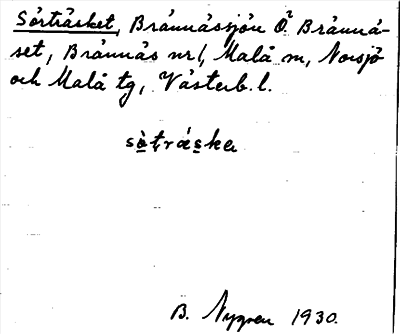 Sörträsket, Brännässjön Ö. Brännä-
set, Brännäs nr 1, Malå sn, Norsjö
och Malå tg, Västerb. l.
sò̤ṭrä́s̠ka
B. Nygren 1930.